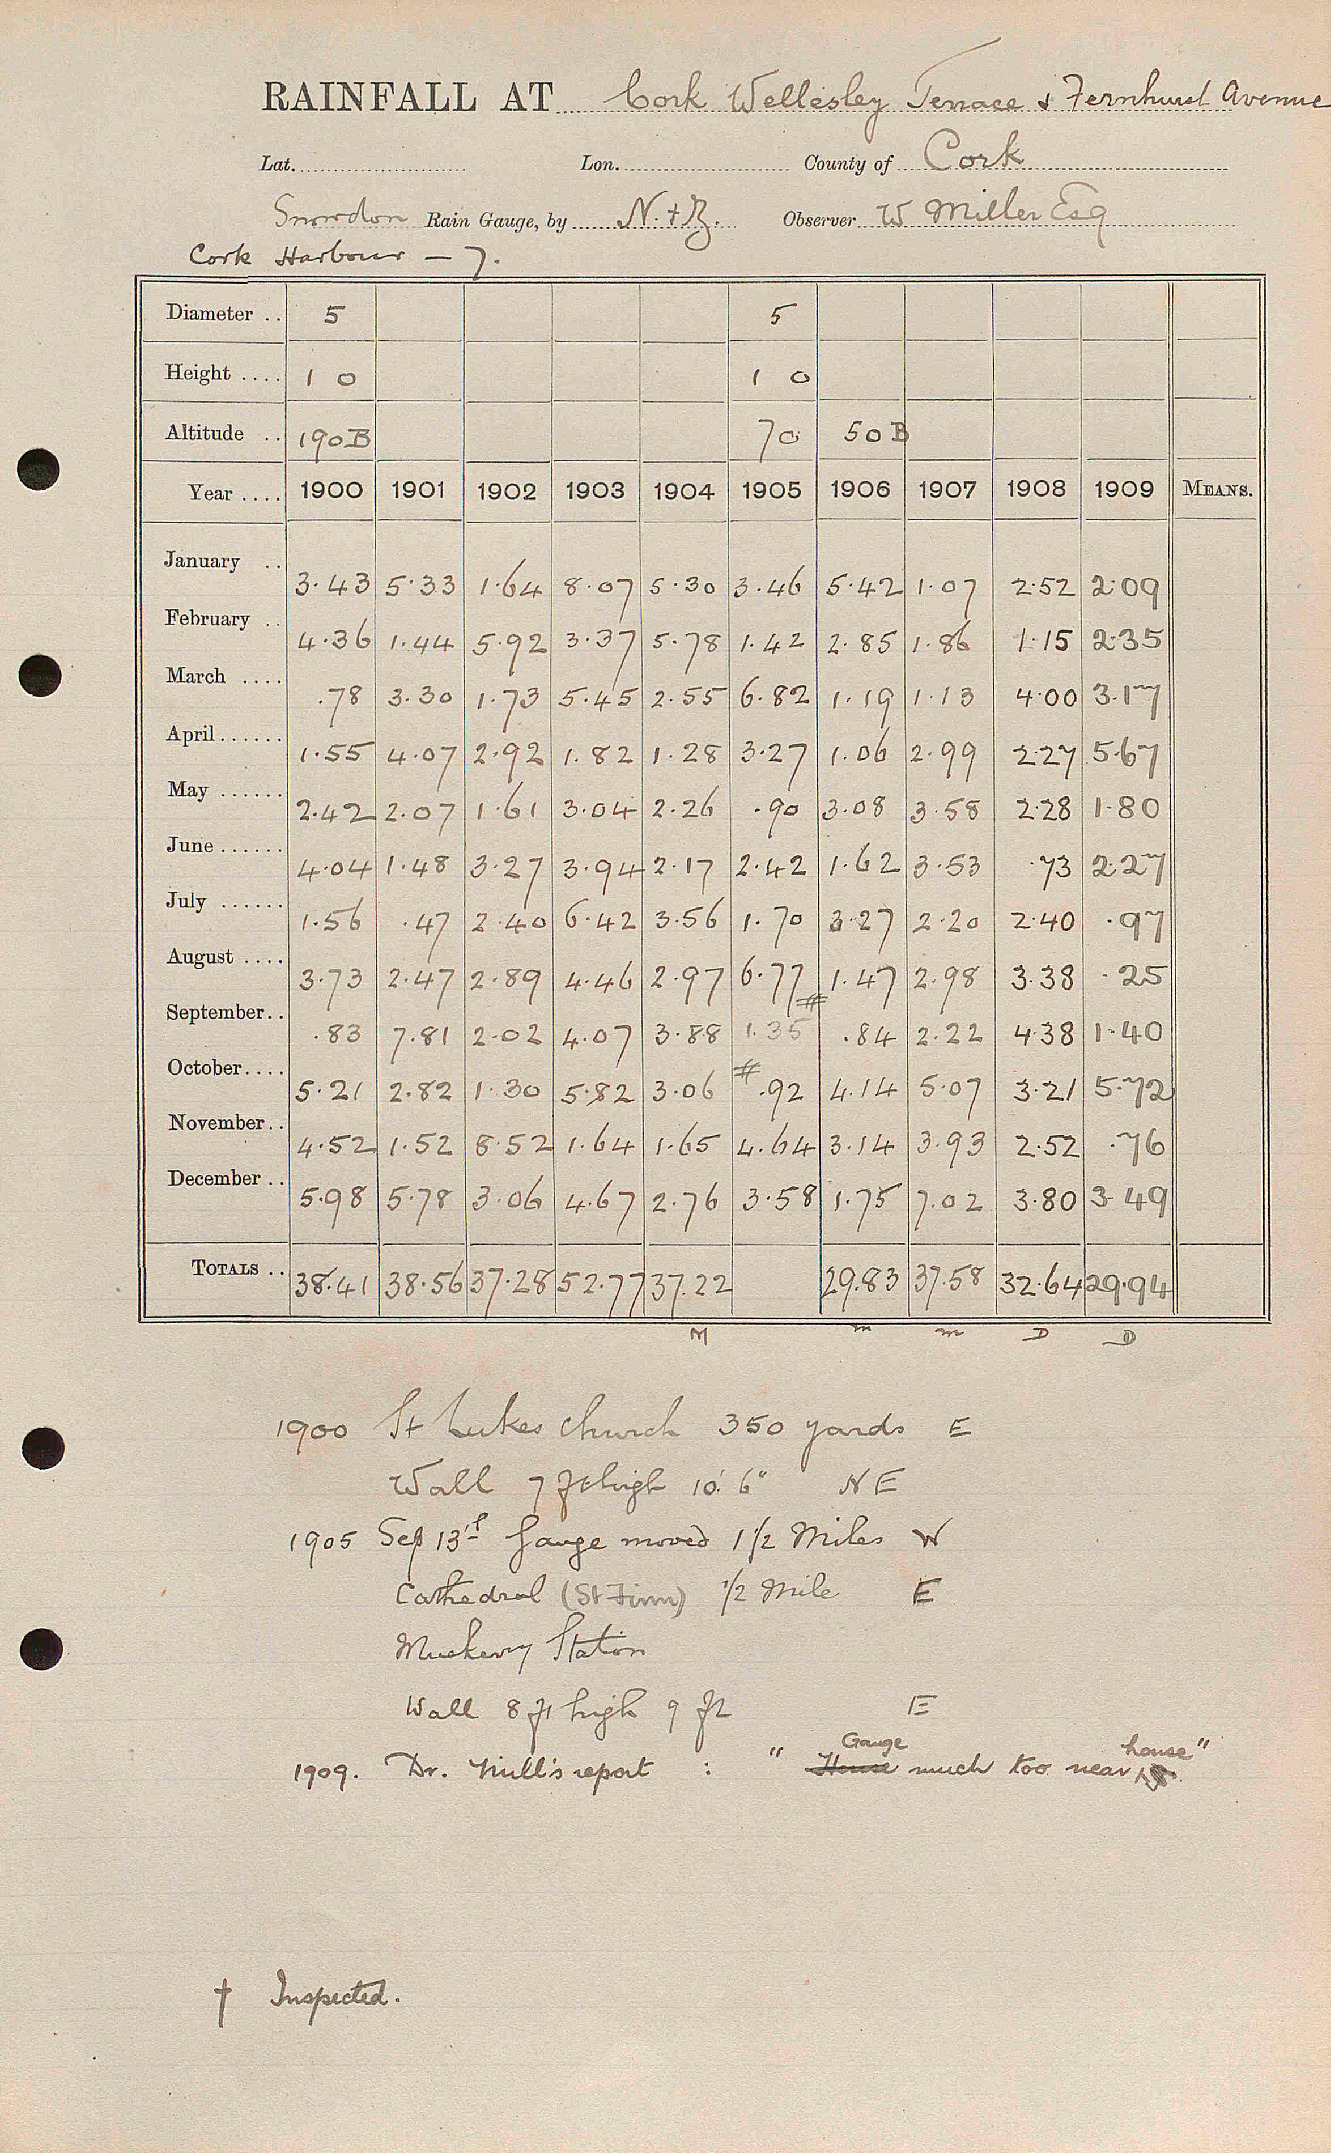 RAINFALL AT Cork Wellesley Terrace & Fernhurst Avenue
Lat. Lon. County of Cork
Snowdon Rain Gauge, by N. & Z. Observer W Miller Esq
Cork Harbour - 7.
Diameter .. 5 5
Height .... 1 0 1 0
Altitude .. 190B 70 50B
Year .... 1900 1901 1902 1903 1904 1905 1906 1907 1908 1909 MEANS.
January .. 3.43 5.33 1.64 8.07 5.30 3.46 5.42 1.07 2.52 2.09
February .. 4.36 1.44 5.92 3.37 5.78 1.42 2.85 1.86 1.15 2.35
March .... .78 3.30 1.73 5.45 2.55 6.82 1.19 1.13 4.00 3.17
April...... 1.55 4.07 2.92 1.82 1.28 3.27 1.06 2.99 2.27 5.67
May ...... 2.42 2.07 1.61 3.04 2.26 .90 3.08 3.58 2.28 1.80
June ...... 4.04 1.48 3.27 3.94 2.17 2.42 1.62 3.53 .73 2.27
July ...... 1.56 .47 2.40 6.42 3.56 1.70 3.27 2.20 2.40 .97
August .... 3.73 2.47 2.89 4.46 2.97 6.77 1.47 2.98 3.38 .25
September.. .83 7.81 2.02 4.07 3.88 1.35 # .84 2.22 4.38 1.40
October.... 5.21 2.82 1.30 5.82 3.06 # .92 4.14 5.07 3.21 5.72
November.. 4.52 1.52 8.52 1.64 1.65 4.64 3.14 3.93 2.52 .76
December .. 5.98 5.78 3.06 4.67 2.76 3.58 1.75 7.02 3.80 3.49
TOTALS .. 38.41 38.56 37.28 52.77 37.22 29.83 37.58 32.64 29.94
M m m D D
1900 St Lukes Church 350 yards E
Wall 7 ft high 10' 6" NE
1905 Sep 13th Gauge moved 1 1/2 Miles W
Cathedral (St Finn) 1/2 Mile E
Muskerry Station
Wall 8 ft high 9 ft E
1909. Dr. Mill's report : " House Gauge much too near house"
† Inspected.